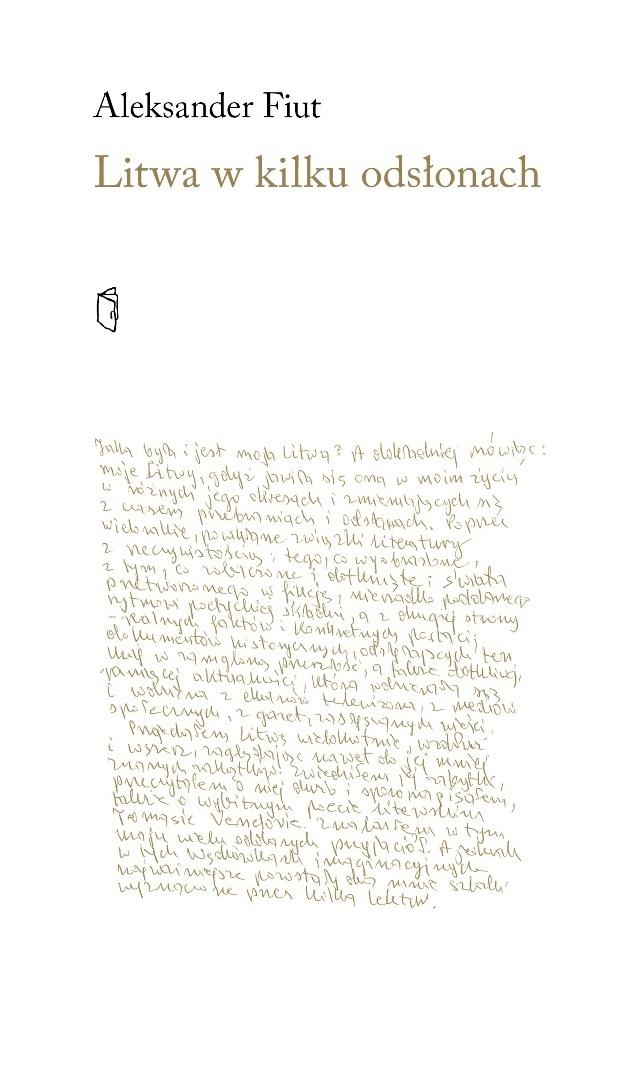 Aleksander Fiut
Litwa w kilku odsłonach
Jaka była i jest moja Litwa? A dokładniej mówiąc:
moje Litwy, gdyż jawiła się ona w moim życiu
w różnych jego okresach i zmieniających się
z czasem przebraniach i odsłonach. Poprzez
wielorakie, powikłane związki literatury
z rzeczywistością: tego, co wyobrażone,
z tym, co zobaczone i dotknięte; świata
przetworzonego w fikcję, nierzadko poddanego
rytmowi poetyckiej, a z drugiej strony
realnych faktów i konkretnych postaci,
dokumentów historycznych, odsyłających ten
kraj w zamgloną przeszłość, a także dotkliwej,
aktualności, która
i wolna z ekranów telewizora, z mediów
społecznych, z gazet, zasłyszanych wieści.
Przejechałem Litwę wielokrotnie, wzdłuż
i wszerz, zaglądając nawet do jej mniej
znanych zakątków. Zwiedziłem jej zabytki,
przeczytałem o niej dużo i sporo napisałem,
także o wybitnym poecie litewskim
Tomasie Venclovie. Znalazłem w tym
kraju wielu oddanych przyjaciół. A jednak
w tych wędrówkach imaginacyjnych
najważniejsze pozostały dla mnie szlaki
wyznaczone przez kilka lektur.